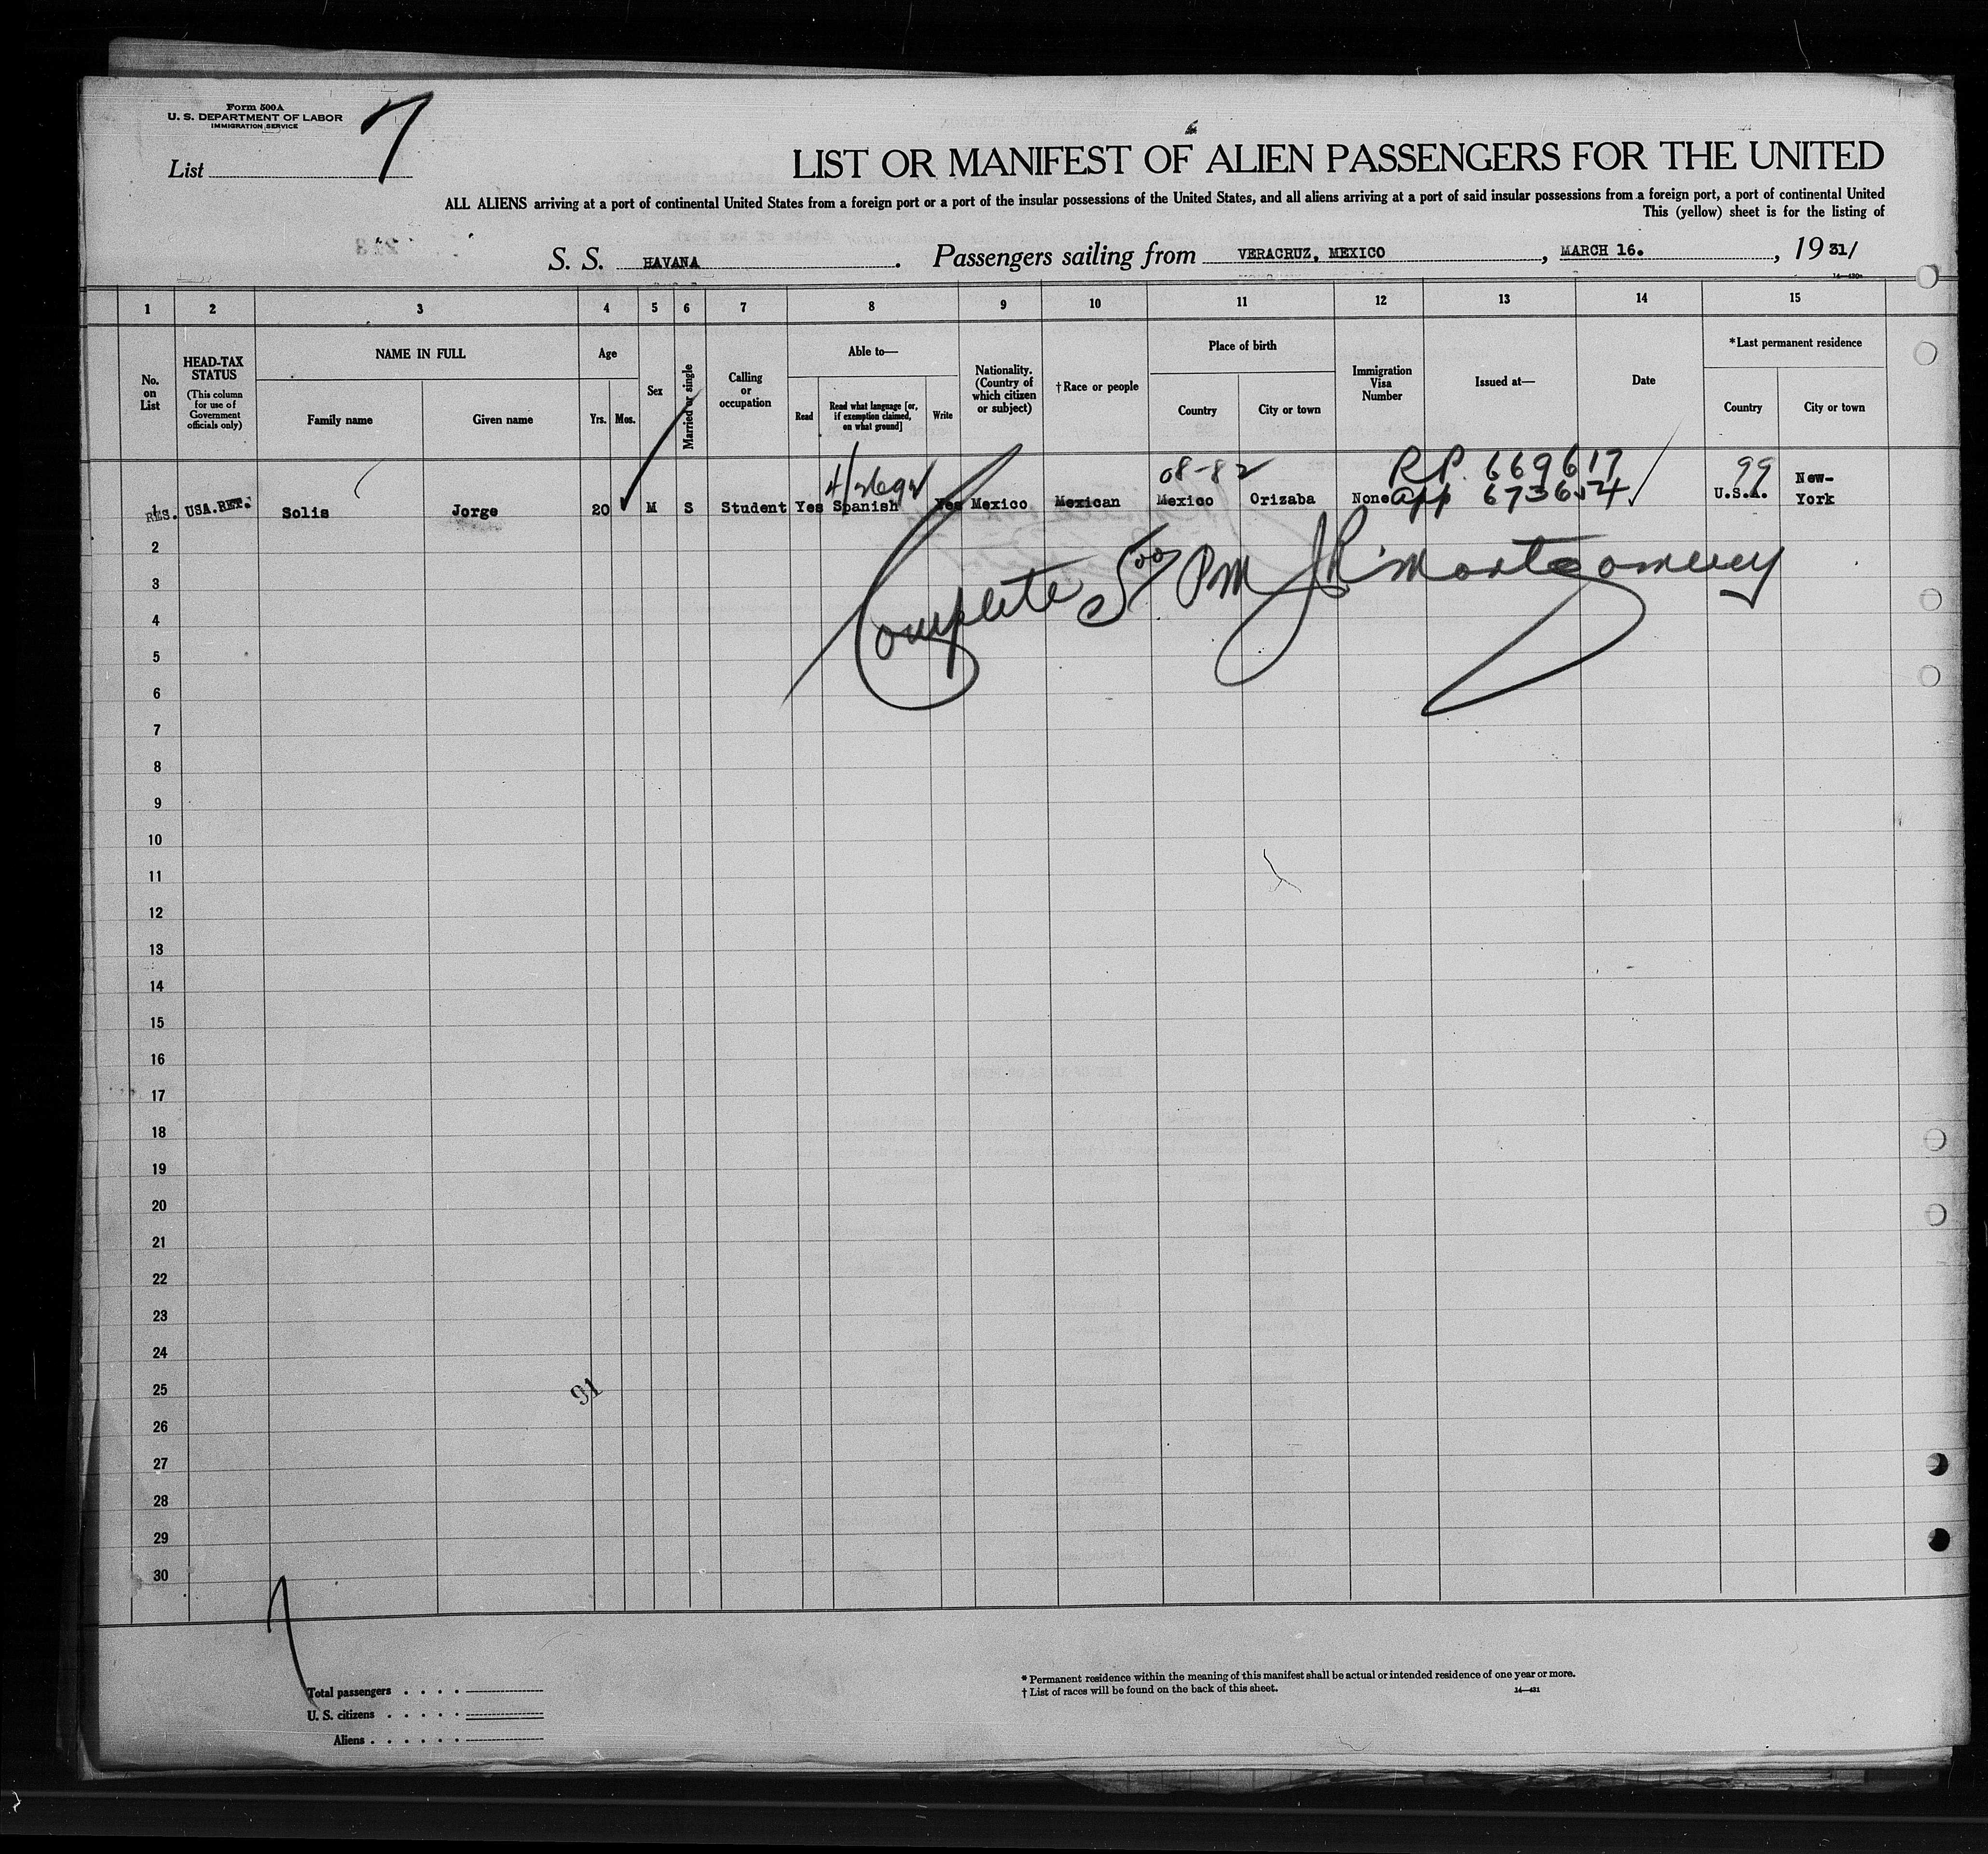 Form 500A
U. S. DEPARTMENT OF LABOR
IMMIGRATION SERVICE
List 7
LIST OR MANIFEST OF ALIEN PASSENGERS FOR THE UNITED
ALL ALIENS arriving at a port of continental United States from a foreign port or a port of the insular possessions of the United States, and all aliens arriving at a port of said insular possessions from a foreign port, a port of continental United
This (yellow) sheet is for the listing of
S. S. HAVANA. Passengers sailing from VERACRUZ, MEXICO, MARCH 16., 1931/
1 2 3 4 5 6 7 8 9 10 11 12 13 14 15
No. on List
HEAD-TAX STATUS
(This column for use of Government officials only)
NAME IN FULL
Family name
Given name
Age
Yrs. Mos.
Sex
Married or single
Calling or occupation
Able to—
Read
Read what language [or, if exemption claimed, on what ground]
Write
Nationality. (Country of which citizen or subject)
†Race or people
Place of birth
Country
City or town
Immigration Visa Number
Issued at—
Date
*Last permanent residence
Country
City or town
08-82 R.P. 669617 99
RES. USA.RET. Solis Jorge 20 M S Student Yes Spanish Yes Mexico Mexican Mexico Orizaba None app 673654 U.S.A. New-York
2
Complete 5 00 PM JR Montgomery
3
4
5
6
7
8
9
10
11
12
13
14
15
16
17
18
19
20
21
22
23
24
25
91
26
27
28
29
30
Total passengers . . . .
U. S. citizens . . . . .
Aliens . . . . . .
* Permanent residence within the meaning of this manifest shall be actual or intended residence of one year or more.
† List of races will be found on the back of this sheet.
14—431